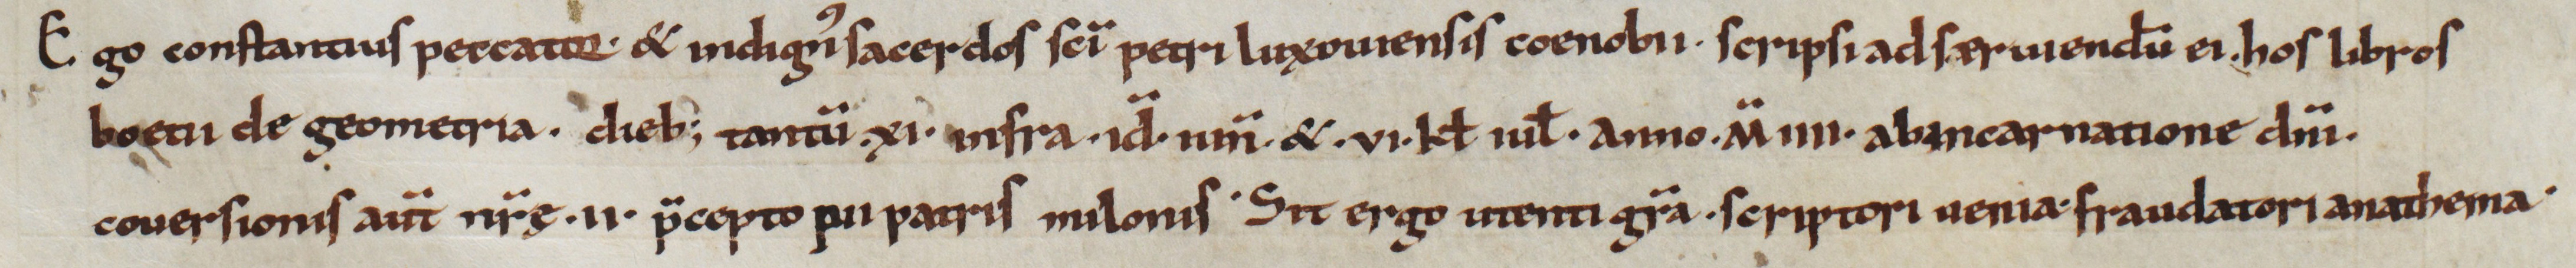 Ego constantius peccator· & indign᷒ sacerdos sc̄i petri luxouiensis coenobii· scripsi ad særuiendū ei· hos libros
boetii de geometria· dieb; tantū·xi· infra·id̄·iun̄·&·vi·kł iuł·Anno·M̄ IIII·ab incarnatione dn̄i·
cōuersionis aūt nr̄ę·ii·p̄cepto pii patris milonis·Sit ergo utenti gr̄a·scriptori uenia·fraudatori anathema·